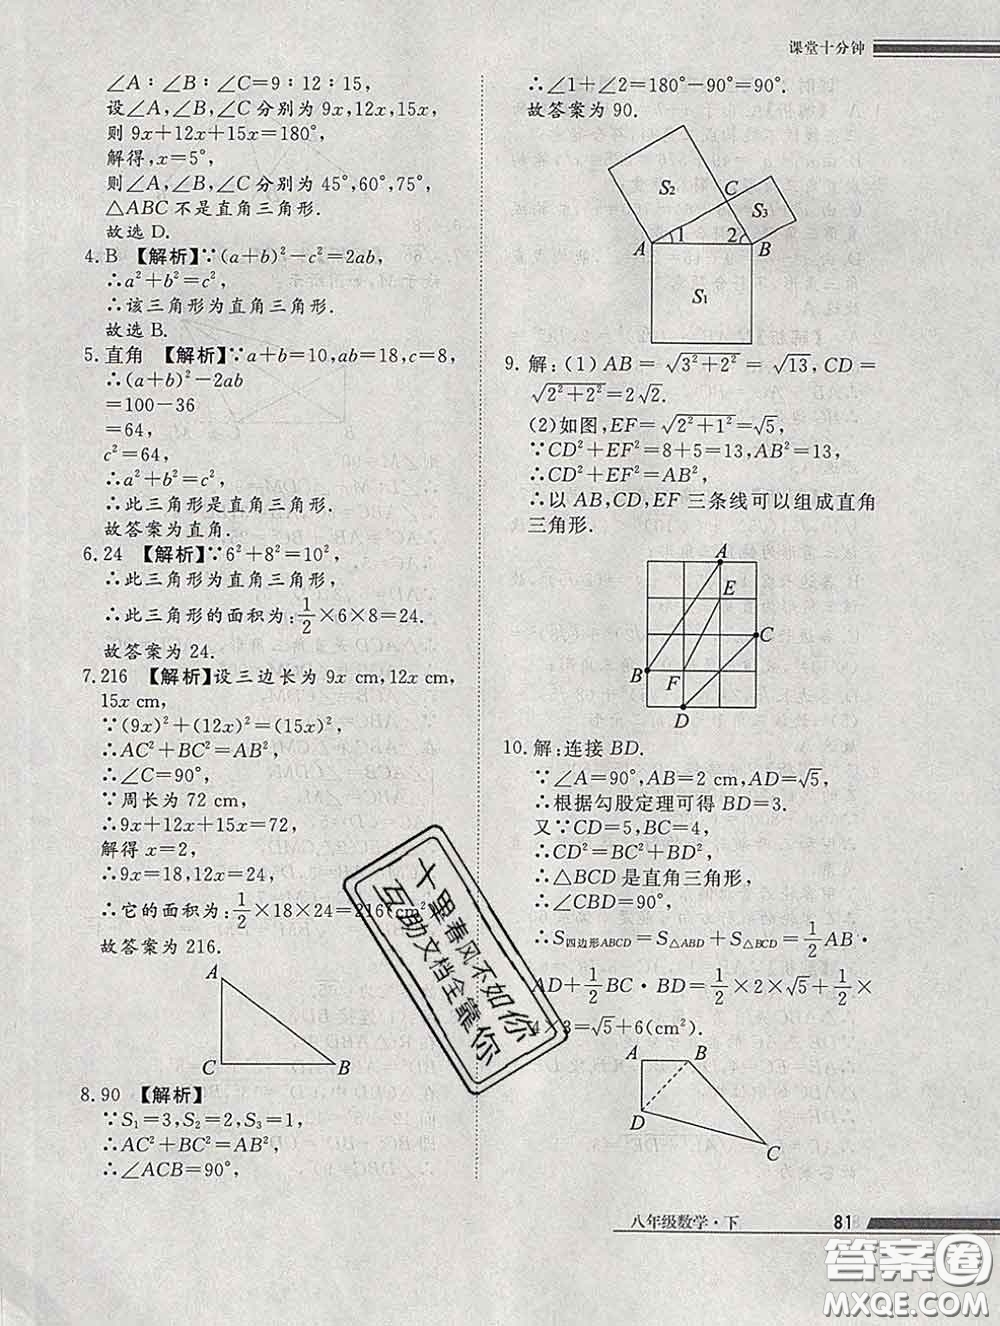 课堂十分钟
∠A∶∠B∶∠C=9∶12∶15,
设∠A,∠B,∠C分别为9x,12x,15x,
则9x+12x+15x=180°,
解得,x=5°,
则∠A,∠B,∠C分别为45°,60°,75°,
△ABC不是直角三角形.
故选D.
4.B 【解析】∵(a+b)²−c²=2ab,
∴a²+b²=c²,
∴该三角形为直角三角形.
故选B.
5.直角 【解析】∵a+b=10,ab=18,c=8,
∴(a+b)²−2ab
=100−36
=64,
c²=64,
∴a²+b²=c²,
∴此三角形是直角三角形.
故答案为直角.
6.24 【解析】∵6²+8²=10²,
∴此三角形为直角三角形,
∴此三角形的面积为:1/2×6×8=24.
故答案为24.
7.216 【解析】设三边长为9x cm,12x cm,
15x cm,
∵(9x)²+(12x)²=(15x)²,
∴AC²+BC²=AB²,
∴∠C=90°,
∵周长为72 cm,
∴9x+12x+15x=72,
解得x=2,
∴9x=18,12x=24,
∴它的面积为:1/2×18×24=216(cm²).
故答案为216.
A
C
B
8.90 【解析】
∵S₁=3,S₂=2,S₃=1,
∴AC²+BC²=AB²,
∴∠ACB=90°,
∴∠1+∠2=180°−90°=90°.
故答案为90.
S₂
C
S₃
A
1
2
B
S₁
9.解:(1)AB=√(3²+2²)=√13,CD=
√(2²+2²)=2√2.
(2)如图,EF=√(2²+1²)=√5,
∵CD²+EF²=8+5=13,AB²=13,
∴CD²+EF²=AB²,
∴以AB,CD,EF三条线可以组成直角
三角形.
A
E
C
B
F
D
10.解:连接BD.
∵∠A=90°,AB=2 cm,AD=√5,
∴根据勾股定理可得BD=3.
又∵CD=5,BC=4,
∴CD²=BC²+BD²,
∴△BCD是直角三角形,
∴∠CBD=90°,
∴S四边形ABCD=S△ABD+S△BCD=1/2AB·
AD+1/2BC·BD=1/2×2×√5+1/2×
4×3=√5+6(cm²).
A
B
D
C
十里春风不如你
互助文档全靠你
八年级数学·下
81
答案圈
MXQE.COM